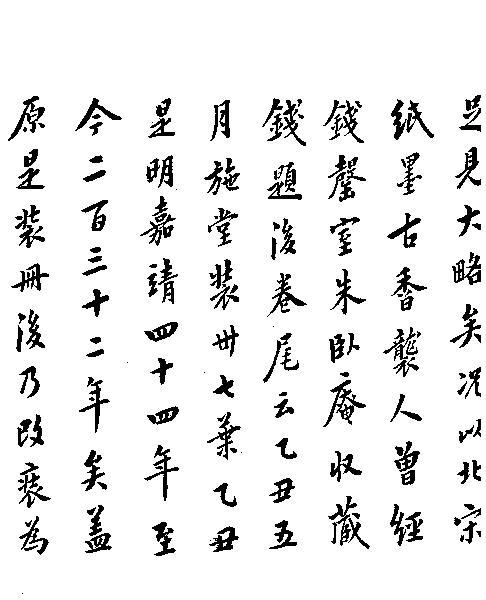 足見大略矣况以北宋
紙墨古香襲人曾經
錢罄室朱臥庵收藏
錢題後卷尾云乙丑五
月施堂裝卌七葉乙丑
是明嘉靖四十四年至
今二百三十二年矣蓋
原是裝冊後乃改裝為